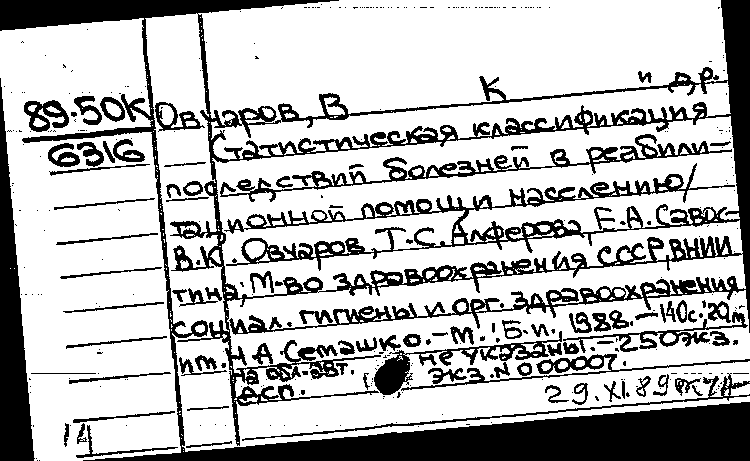 89-50К Овчаров, В К и др.
6316 Статистическая классификация
последствий болезней в реабили-
тационной помощи населению/
В.К. Овчаров, Т.С. Алферова, Е.А. Савос-
тина; М-во здравоохранения СССР, ВНИИ
социал. гигиены и орг. здравоохранения
им. Н.А. Семашко. - М.: Б.и., 1988. - 140с.; 20
На обл. авт. не указаны. - 250экз.
ДСП. экз. N 000007.
29.XI.89
14